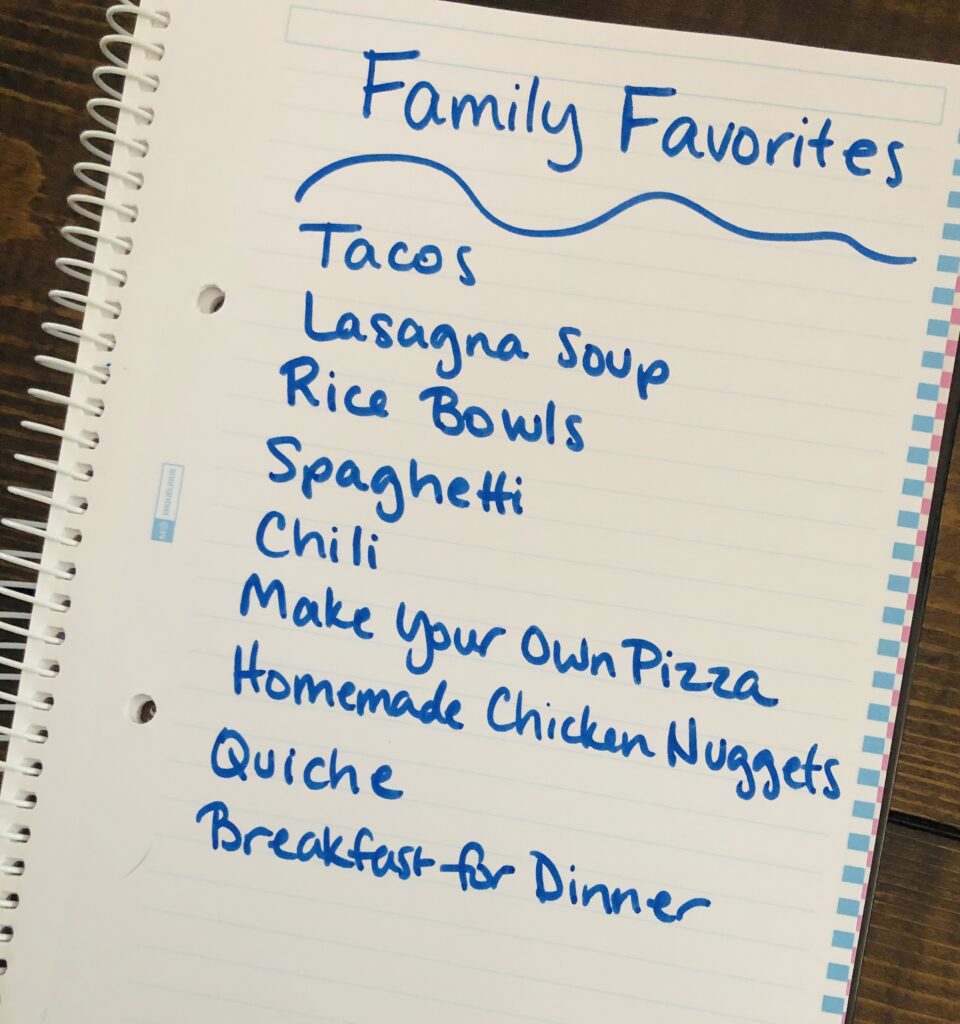 Family Favorites
Tacos
Lasagna Soup
Rice Bowls
Spaghetti
Chili
Make Your Own Pizza
Homemade Chicken Nuggets
Quiche
Breakfast for Dinner
MIQUELRIUS